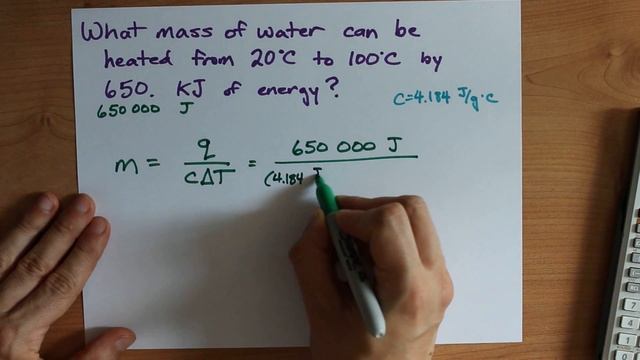 What mass of water can be
heated from 20°C to 100°C by
650. KJ of energy?
650 000 J
C=4.184 J/g·c
m = q/CΔT = 650 000 J
(4.184 J